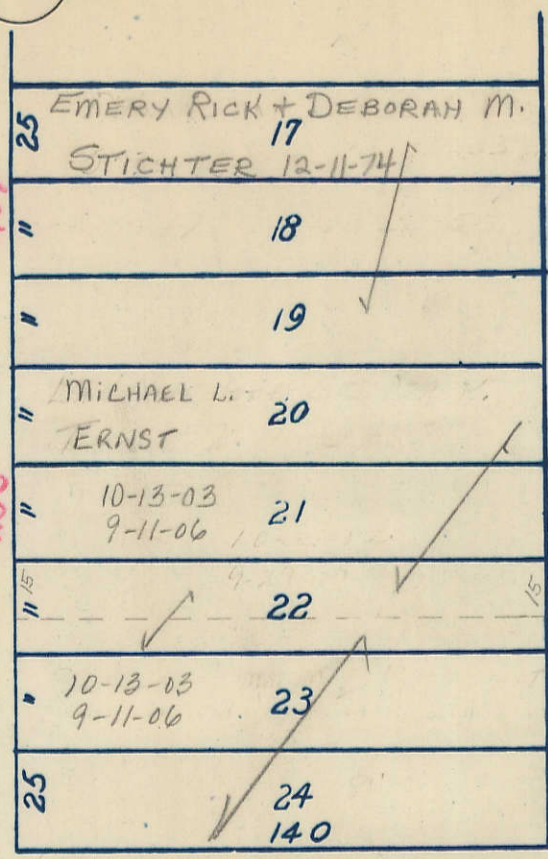 25 EMERY RICK + DEBORAH M.
17
STICHTER 12-11-74
" 18
" 19
" MICHAEL L. 20
ERNST
" 10-13-03 21
9-11-06
15 15
" 22
" 10-13-03 23
9-11-06
25 24
140